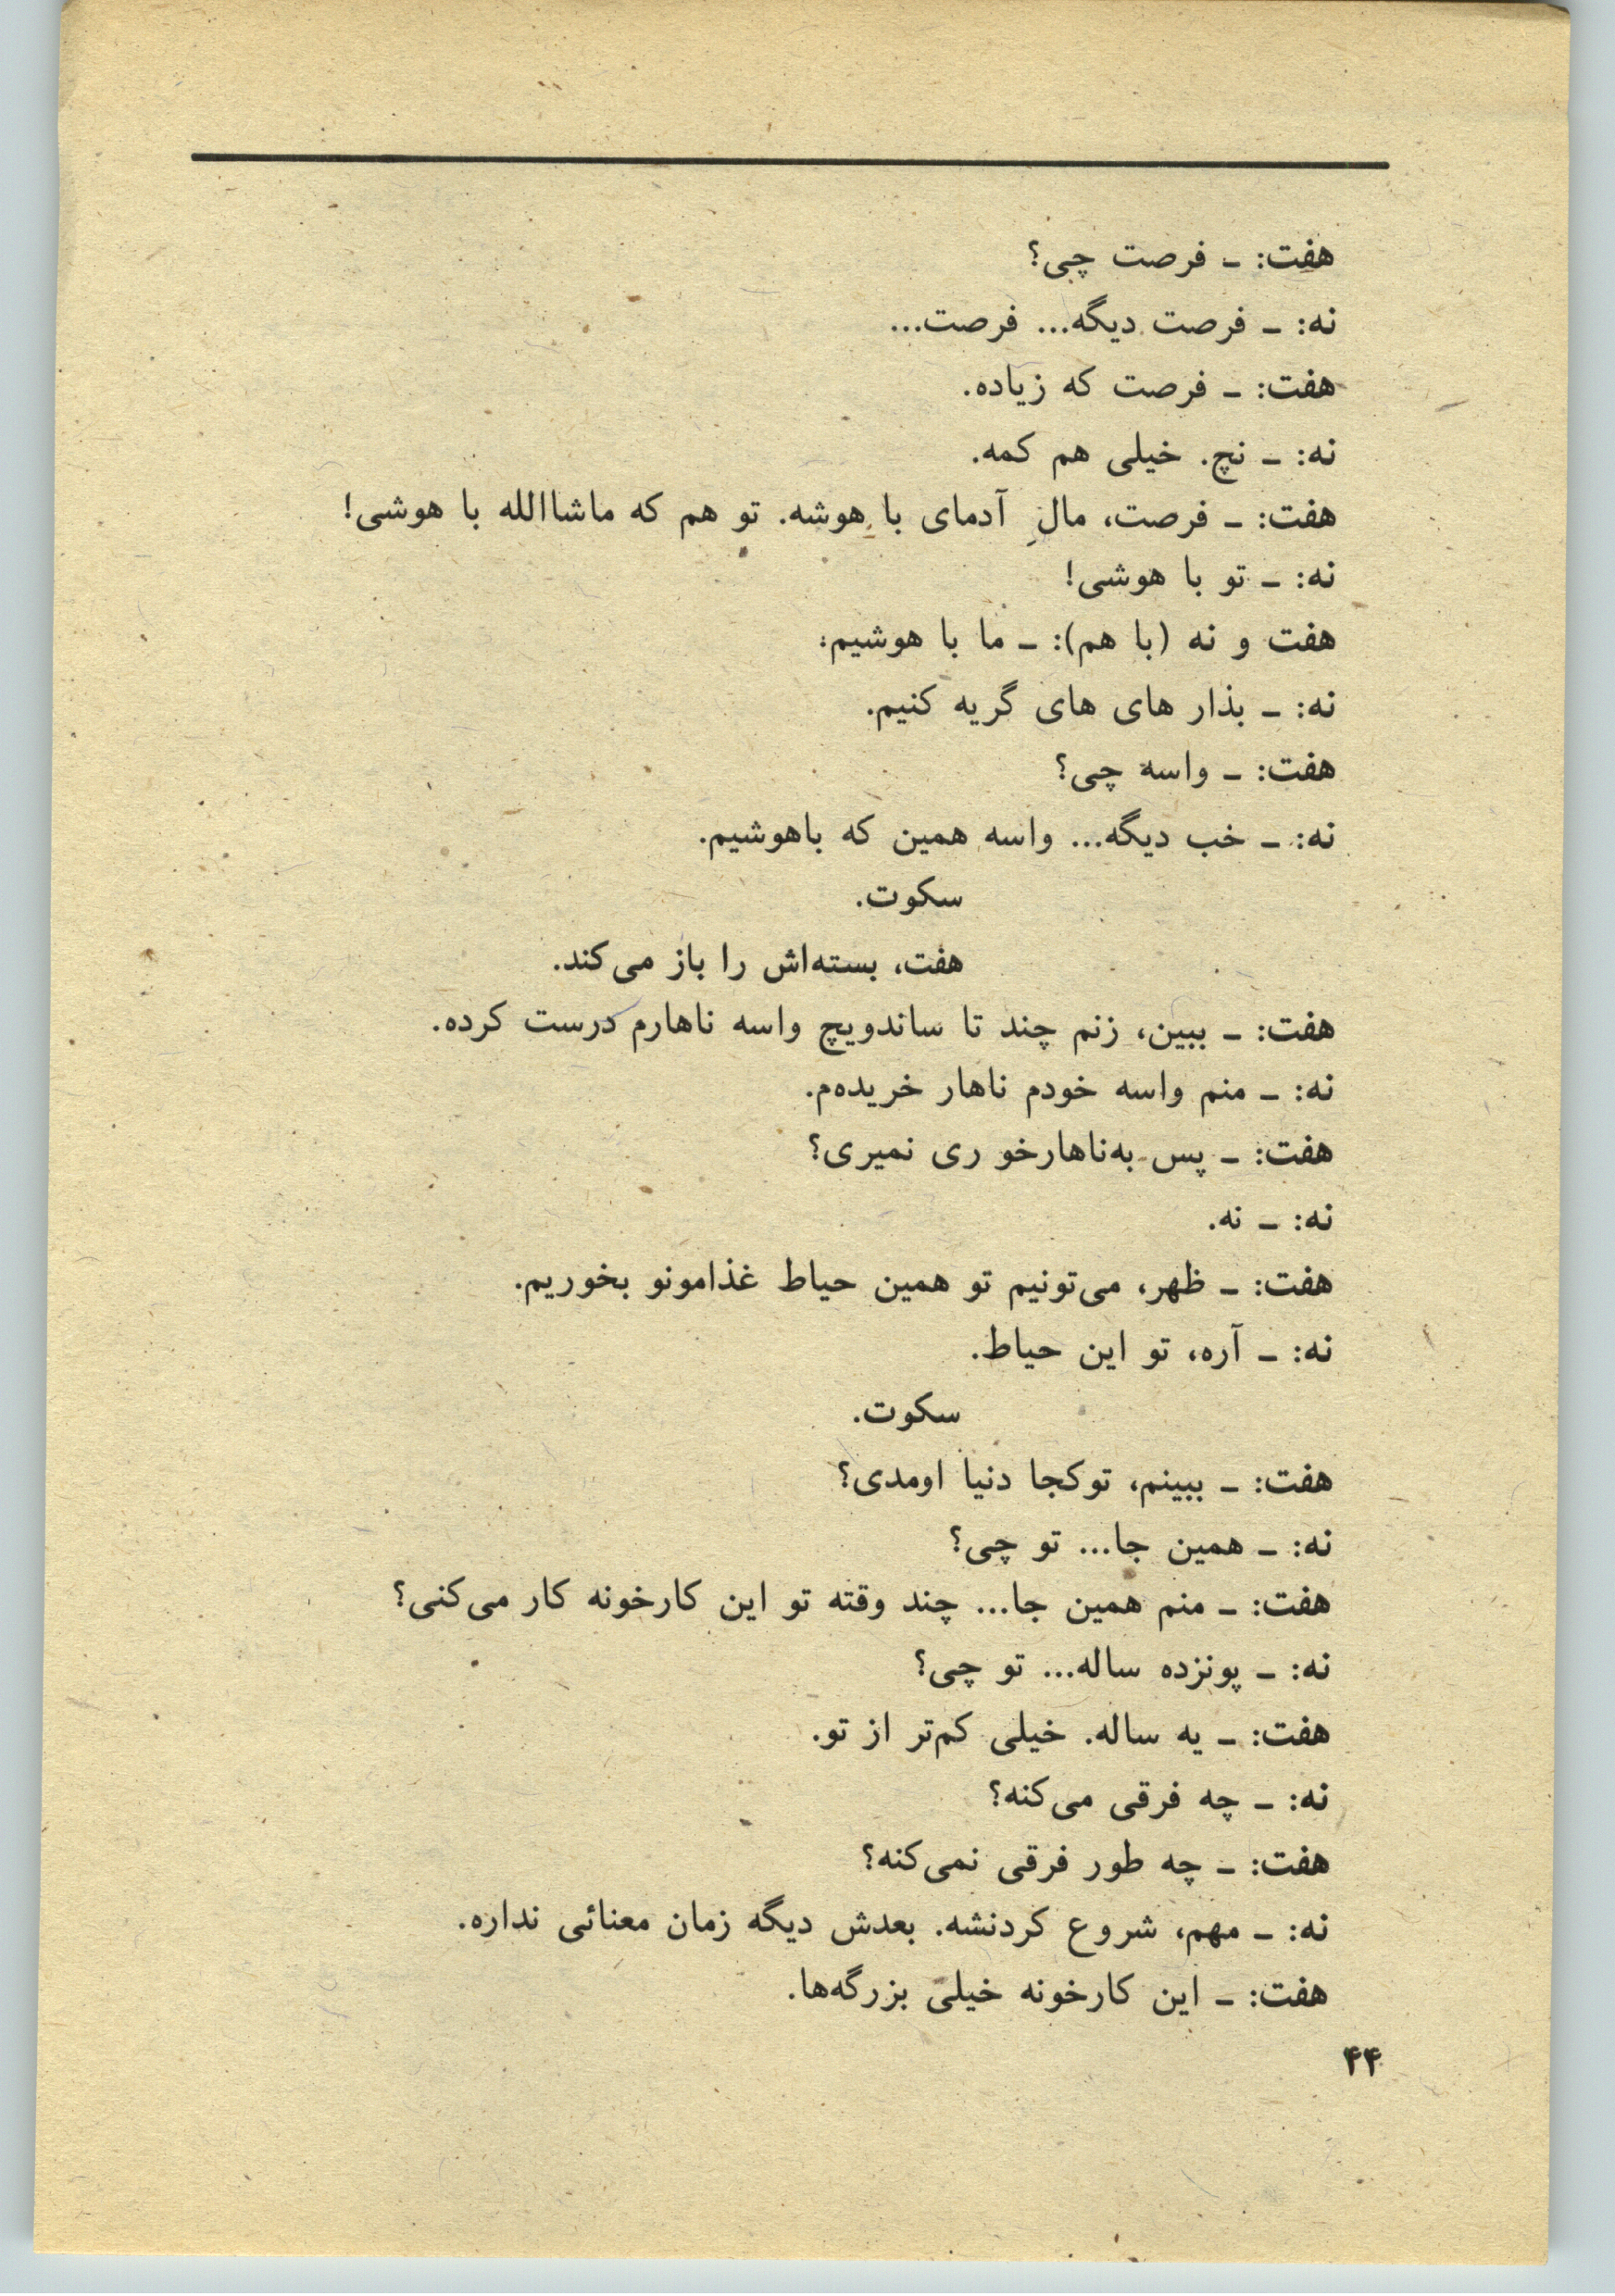 هفت: ـ فرصت چی؟
نه: ـ فرصت دیگه... فرصت...
هفت: ـ فرصت که زیاده.
نه: ـ نچ. خیلی هم کمه.
هفت: ـ فرصت، مالِ آدمای با هوشه. تو هم که ماشاالله با هوشی!
نه: ـ تو با هوشی!
هفت و نه (با هم): ـ ما با هوشیم:
نه: ـ بذار های های گریه کنیم.
هفت: ـ واسه چی؟
نه: ـ خب دیگه... واسه همین که باهوشیم.
سکوت.
هفت، بسته‌اش را باز می‌کند.
هفت: ـ ببین، زنم چند تا ساندویچ واسه ناهارم درست کرده.
نه: ـ منم واسه خودم ناهار خریده‌م.
هفت: ـ پس به‌ناهارخو ری نمیری؟
نه: ـ نه.
هفت: ـ ظهر، می‌تونیم تو همین حیاط غذامونو بخوریم.
نه: ـ آره، تو این حیاط.
سکوت.
هفت: ـ ببینم، توکجا دنیا اومدی؟
نه: ـ همین جا... تو چی؟
هفت: ـ منم همین جا... چند وقته تو این کارخونه کار می‌کنی؟
نه: ـ پونزده ساله... تو چی؟
هفت: ـ یه ساله. خیلی کم‌تر از تو.
نه: ـ چه فرقی می‌کنه؟
هفت: ـ چه طور فرقی نمی‌کنه؟
نه: ـ مهم، شروع کردنشه. بعدش دیگه زمان معنائی نداره.
هفت: ـ این کارخونه خیلی بزرگه‌ها.
۴۴